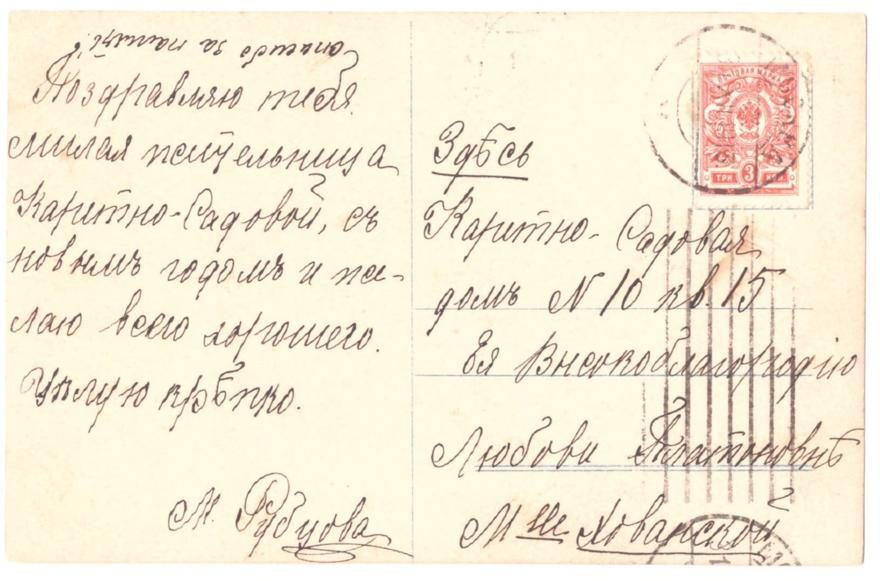 спасибо за память!
Поздравляю тебя
милая жительница
Каретно-Садовой, съ
новымъ годомъ и же-
лаю всего хорошего.
Цѣлую крѣпко.
М. Рубцова
Здѣсь
Каретно-Садовая
домъ N 10 кв. 15
Ея Высокоблагородію
Любови Платоновнѣ
Mlle Хованской
ПОЧТОВАЯ МАРКА
ТРИ 3 КОП